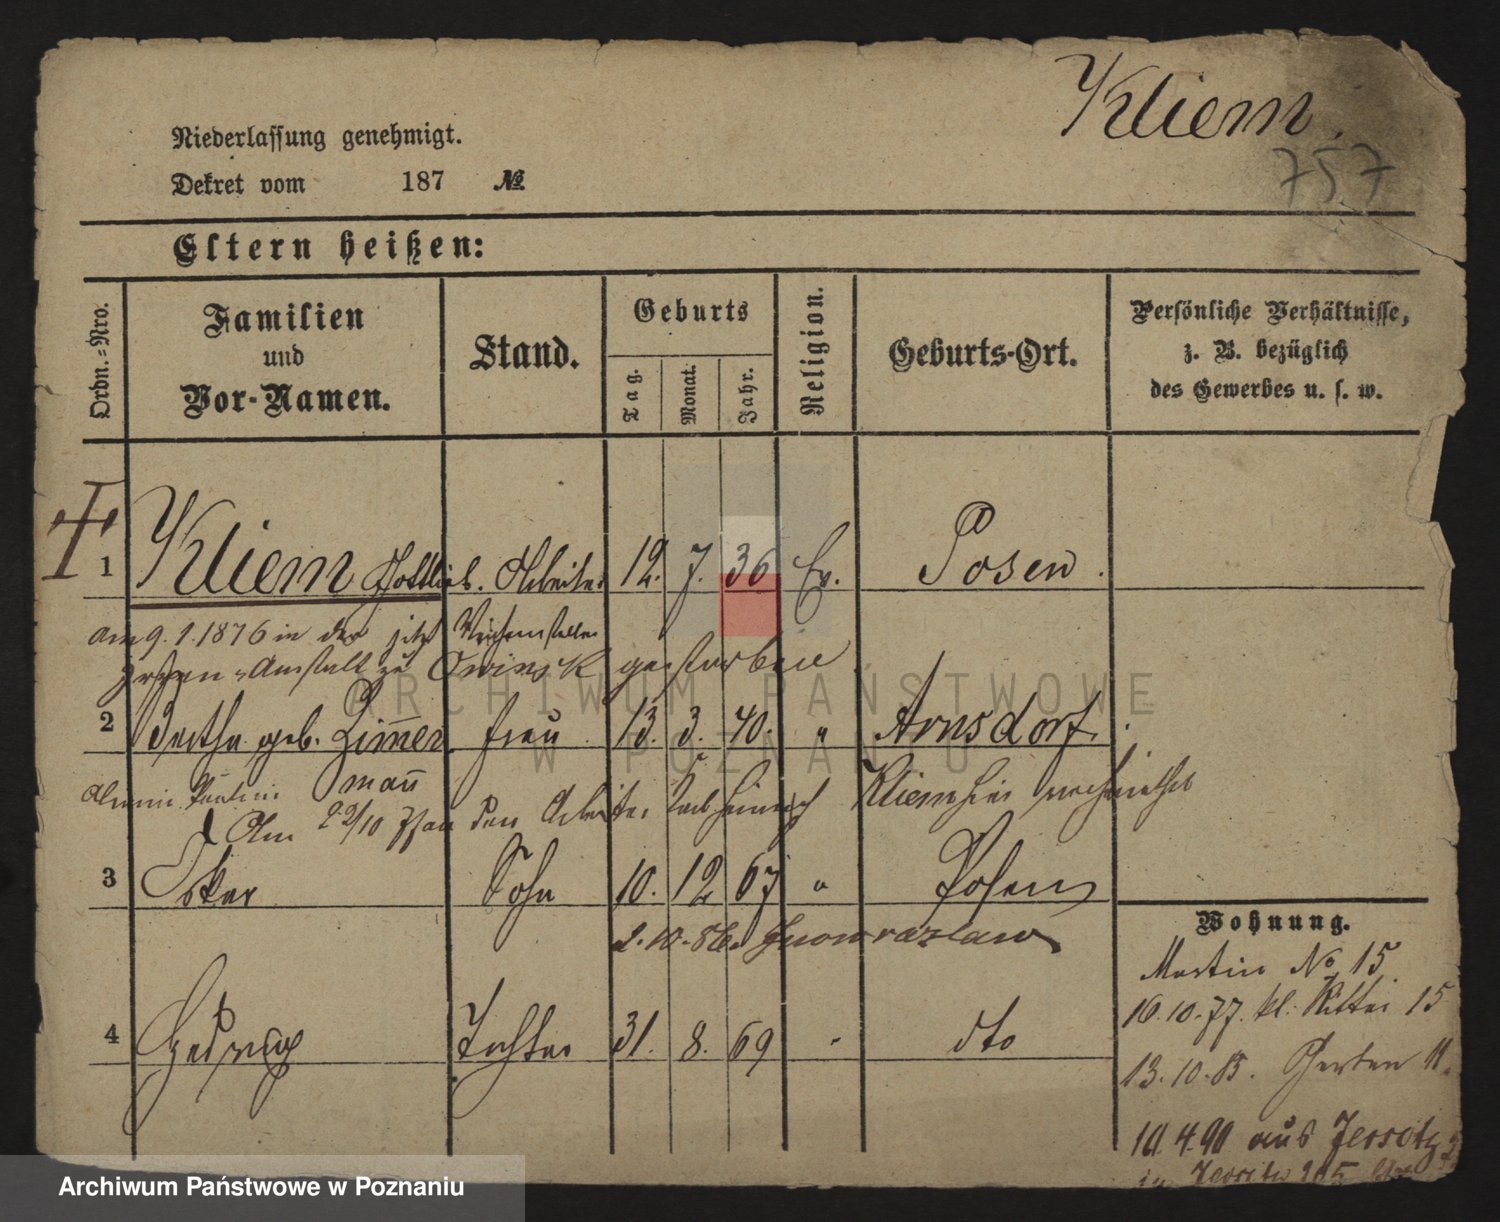 Kliem.
757
Niederlassung genehmigt.
Dekret vom 187 №
Eltern heißen:
Ordn.=Nro.
Familien
und
Vor-Namen.
Stand.
Geburts
Tag.
Monat.
Jahr.
Religion.
Geburts-Ort.
Persönliche Verhältnisse,
z. B. bezüglich
des Gewerbes u. s. w.
1 Kliem Gottlieb. Arbeiter 12. 7. 36 Ev. Posen.
am 9. 1. 1876 in der
Irren-Anstalt zu Owinsk gestorben
ARCHIWUM PAŃSTWOWE
W POZNANIU
2 Bertha geb. Zimmer frau 13. 3. 40. " Arnsdorf.
mann
Am 22/10 den Arbeiter Heinrich Kliem hier
3 Oskar Sohn 10. 12 67 " Posen
2. 10. 86. Inowrazlaw
4 Hedwig Tochter 31. 8. 69 " dto
Wohnung.
Martin No 15
16. 10. 77. kl. Ritter 15
13. 10. 85. Garten 11.
10. 4. 90 aus Jersitz
Jersitz
Archiwum Państwowe w Poznaniu